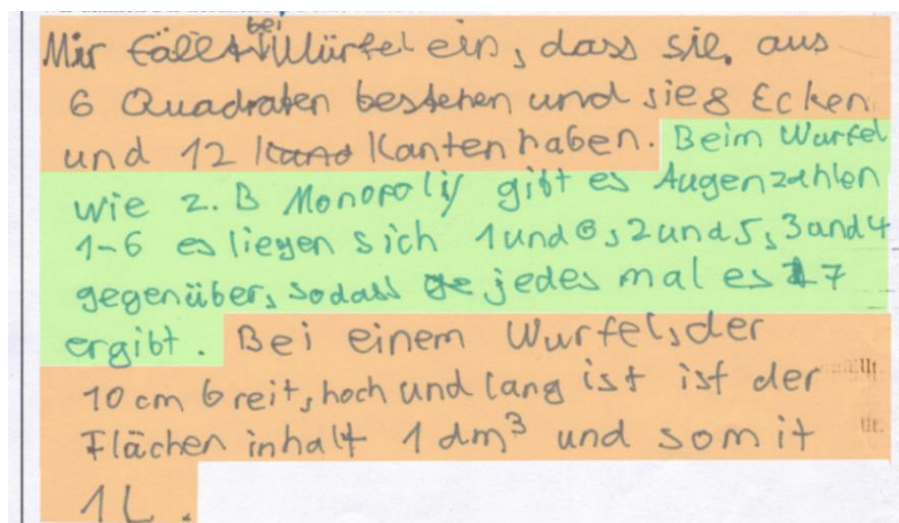 Mir fällt bei Würfel ein, dass sie aus
6 Quadraten bestehen und sie 8 Ecken
und 12 Kanten haben. Beim Würfel
wie z.B Monopoly gibt es Augenzahlen
1-6 es liegen sich 1 und 6, 2 und 5, 3 und 4
gegenüber, sodass jedes mal es 7
ergibt. Bei einem Wurfel, der
10 cm breit, hoch und lang ist ist der
Flächen inhalt 1 dm³ und somit
1L.